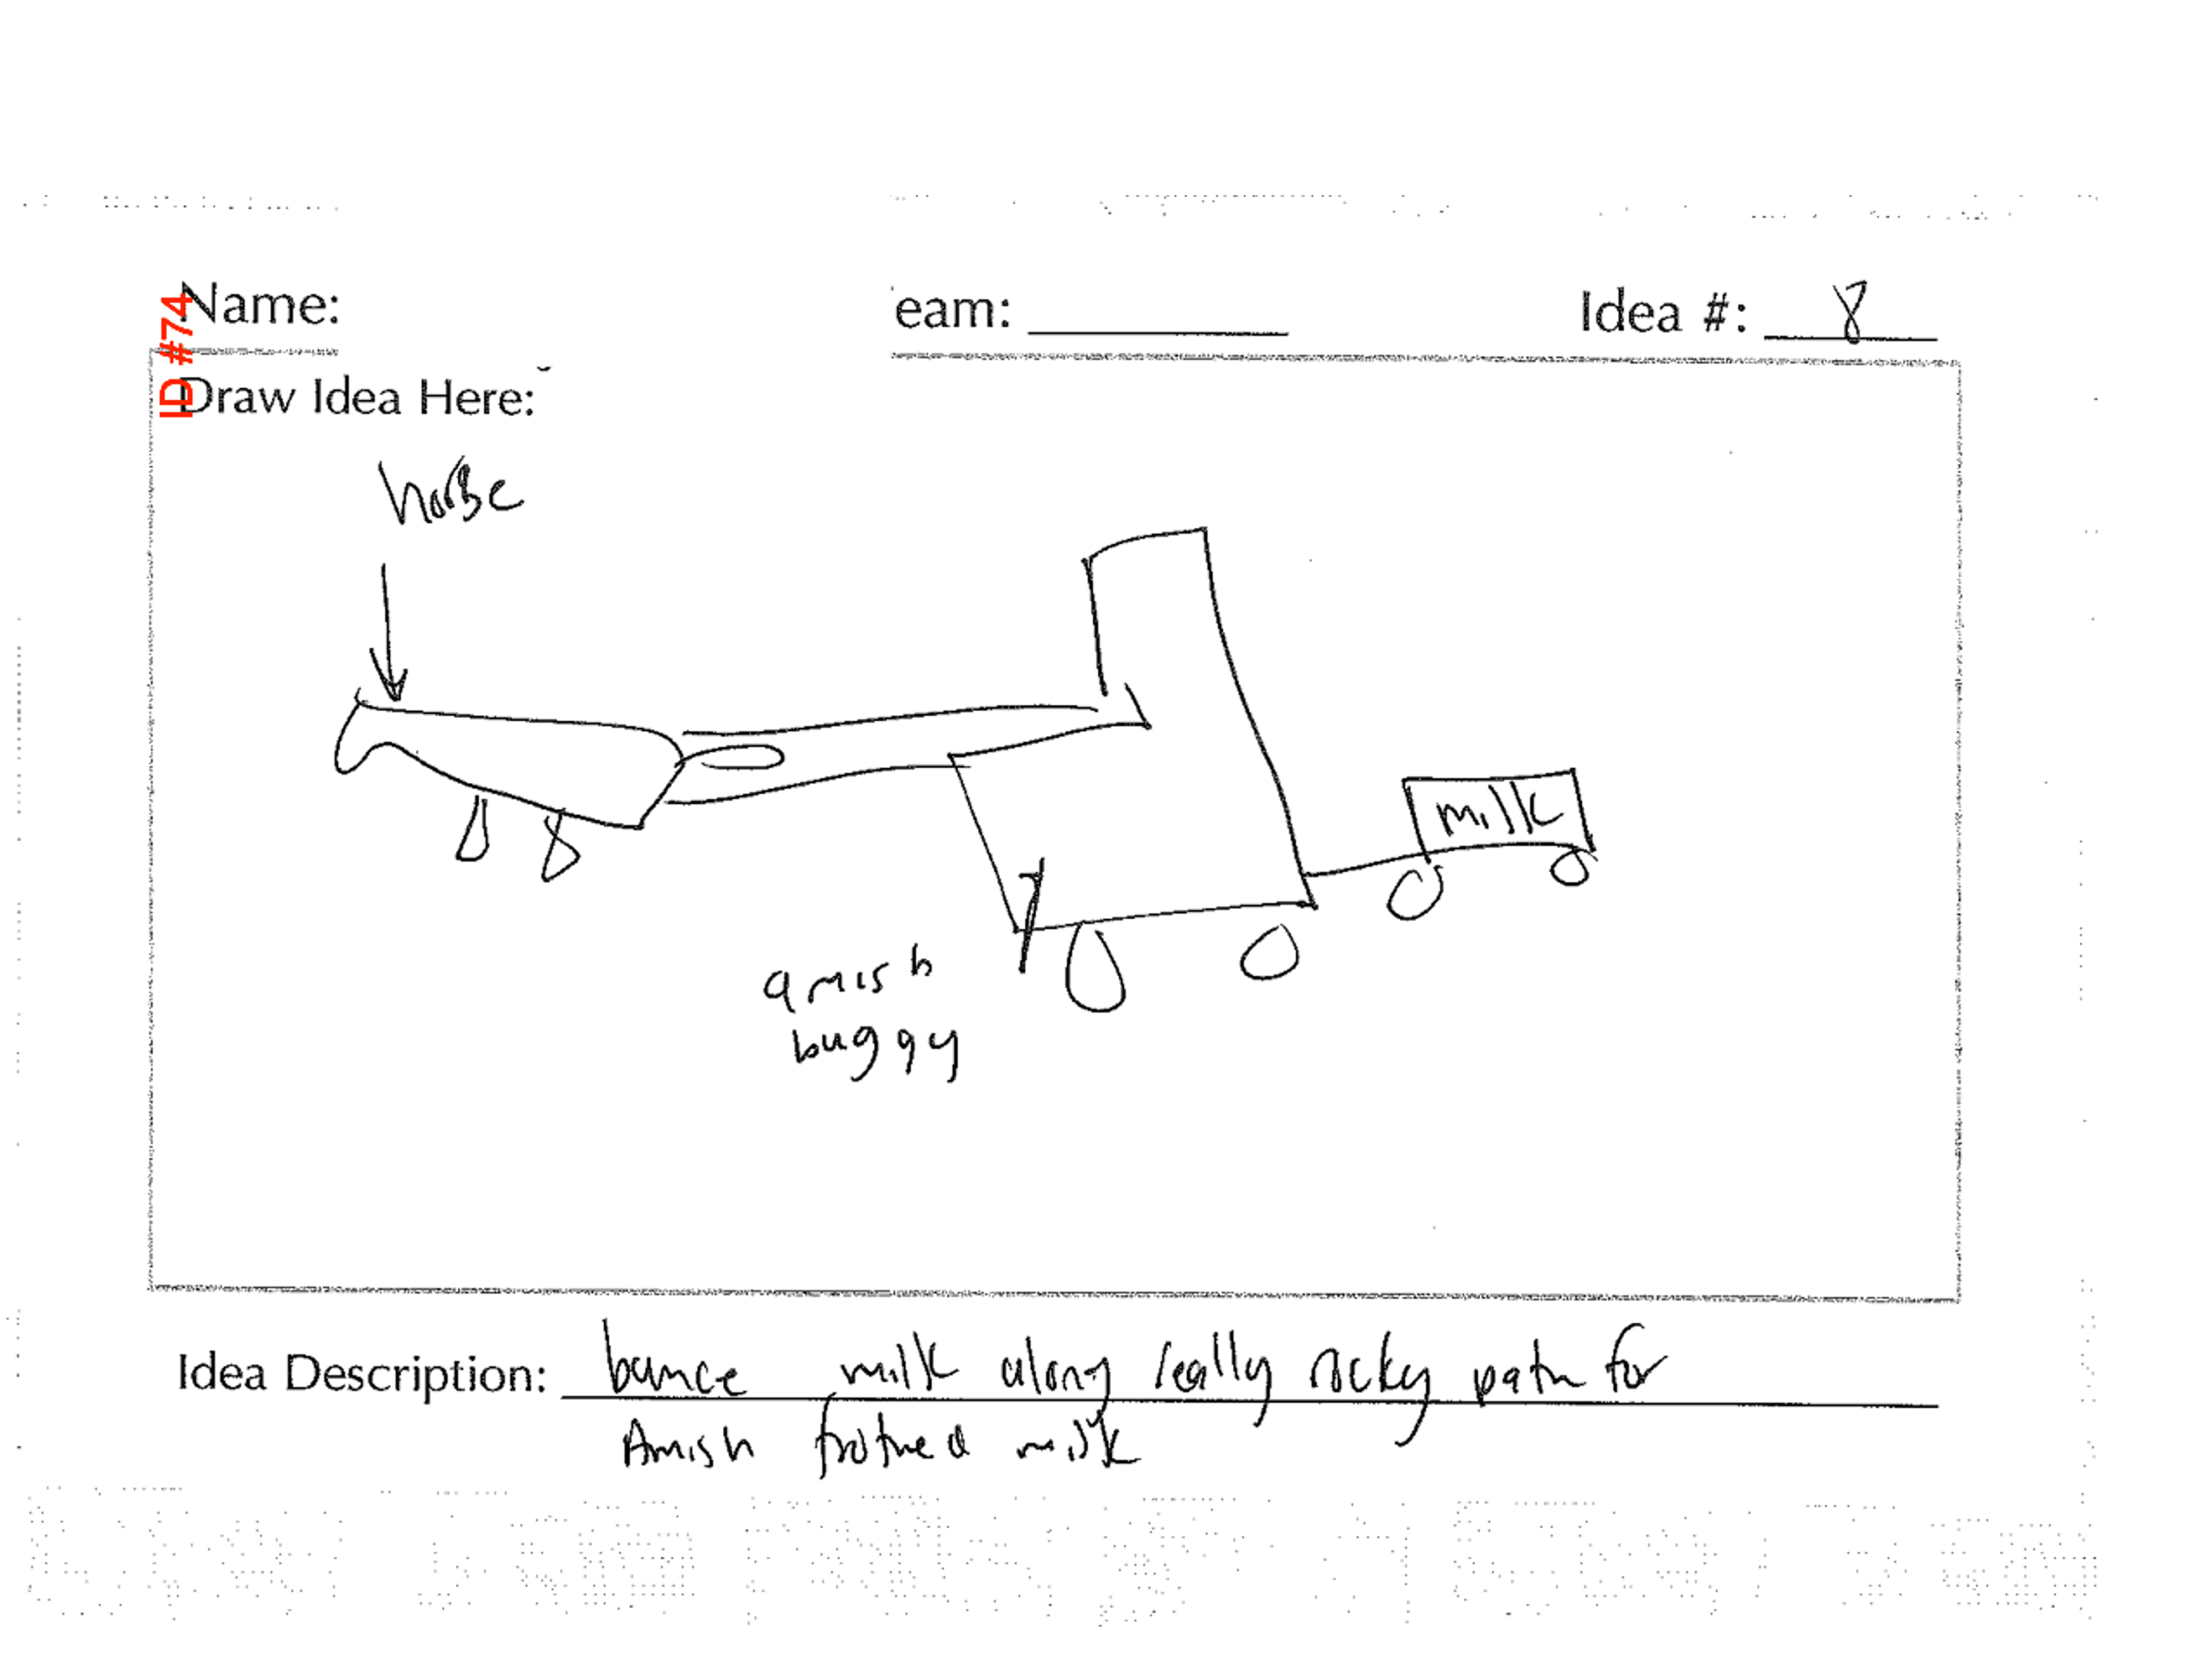 ID #74
Name: eam: Idea #: 8
Draw Idea Here:
horse
milk
amish
buggy
Idea Description: bounce milk along really rocky path for
Amish frothed milk